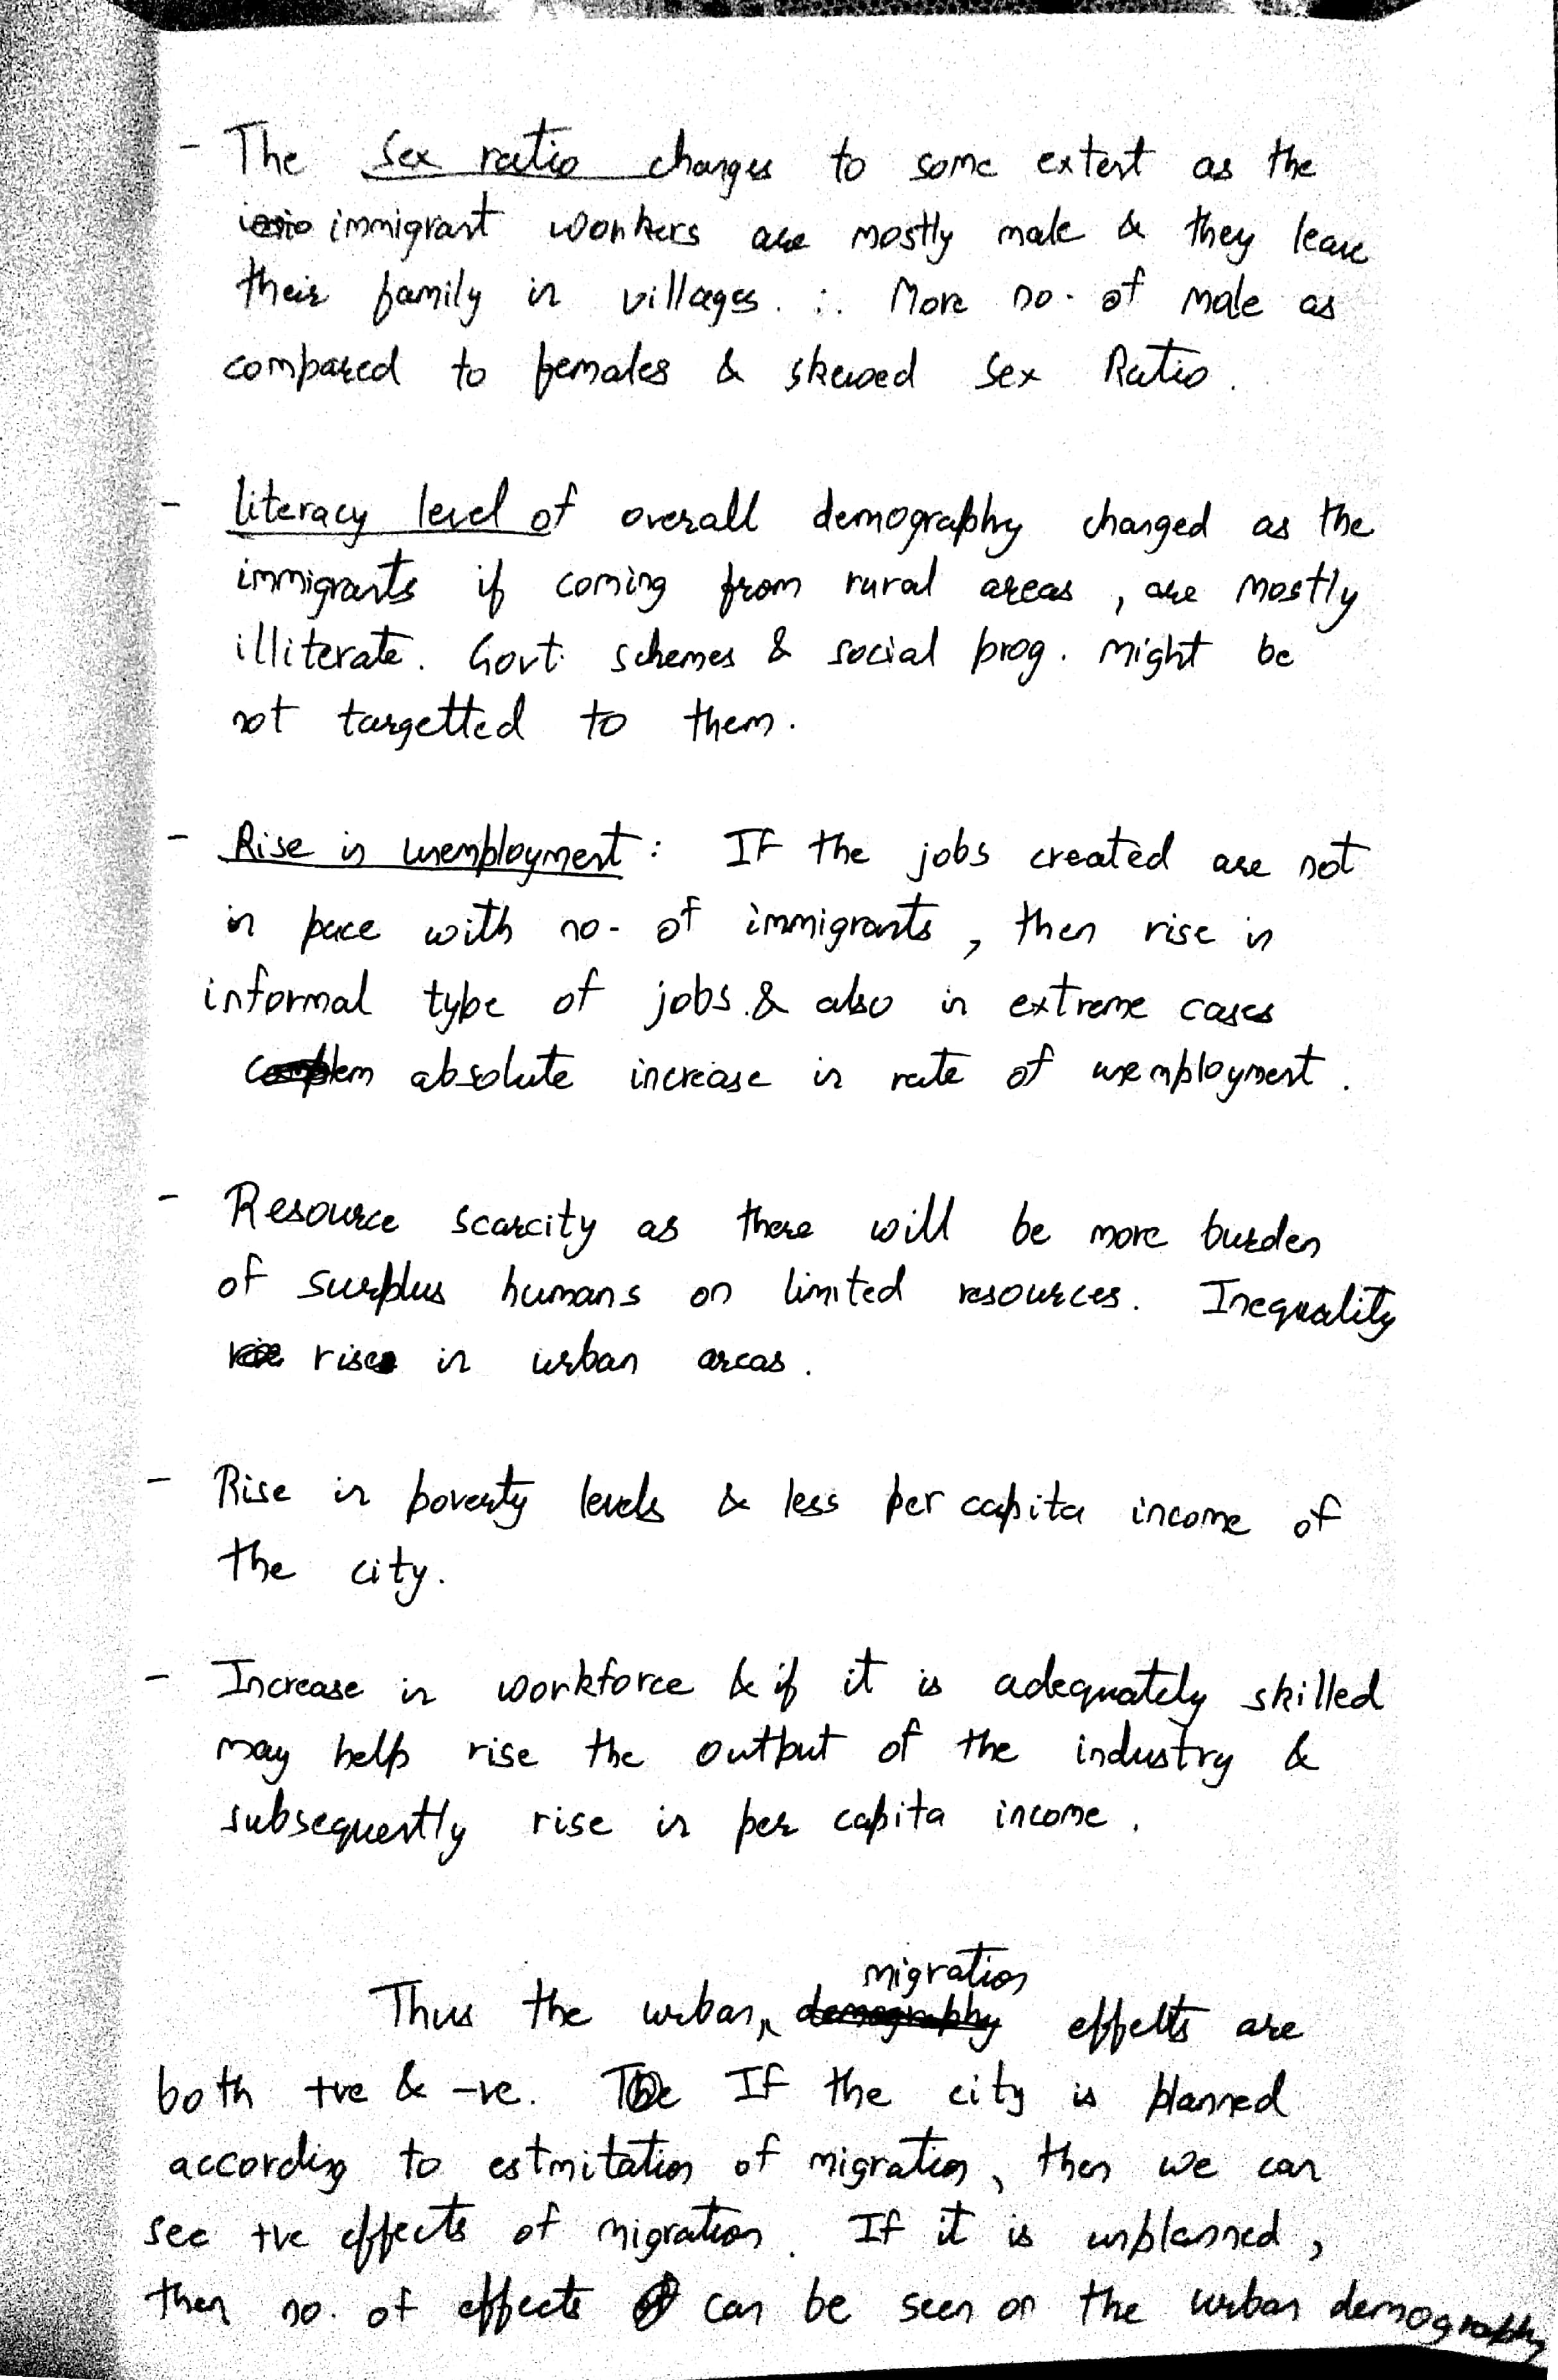 - The Sex ratio changes to some extent as the
immigrant workers are mostly male & they leave
their family in villages. ∴ More no. of male as
compared to females & skewed Sex Ratio.
- literacy level of overall demography changed as the
immigrants if coming from rural areas, are mostly
illiterate. Govt. schemes & social prog. might be
not targetted to them.
- Rise in unemployment: If the jobs created are not
in pace with no. of immigrants, then rise in
informal type of jobs & also in extreme cases
absolute increase in rate of unemployment.
- Resource scarcity as there will be more burden
of surplus humans on limited resources. Inequality
rises in urban areas.
- Rise in poverty levels & less per capita income of
the city.
- Increase in workforce & if it is adequately skilled
may help rise the output of the industry &
subsequently rise in per capita income.
Thus the urban migration effects are
both +ve & -ve. If the city is planned
according to estmitation of migration, then we can
see +ve effects of migration. If it is unplanned,
then no. of effects can be seen on the urban demography